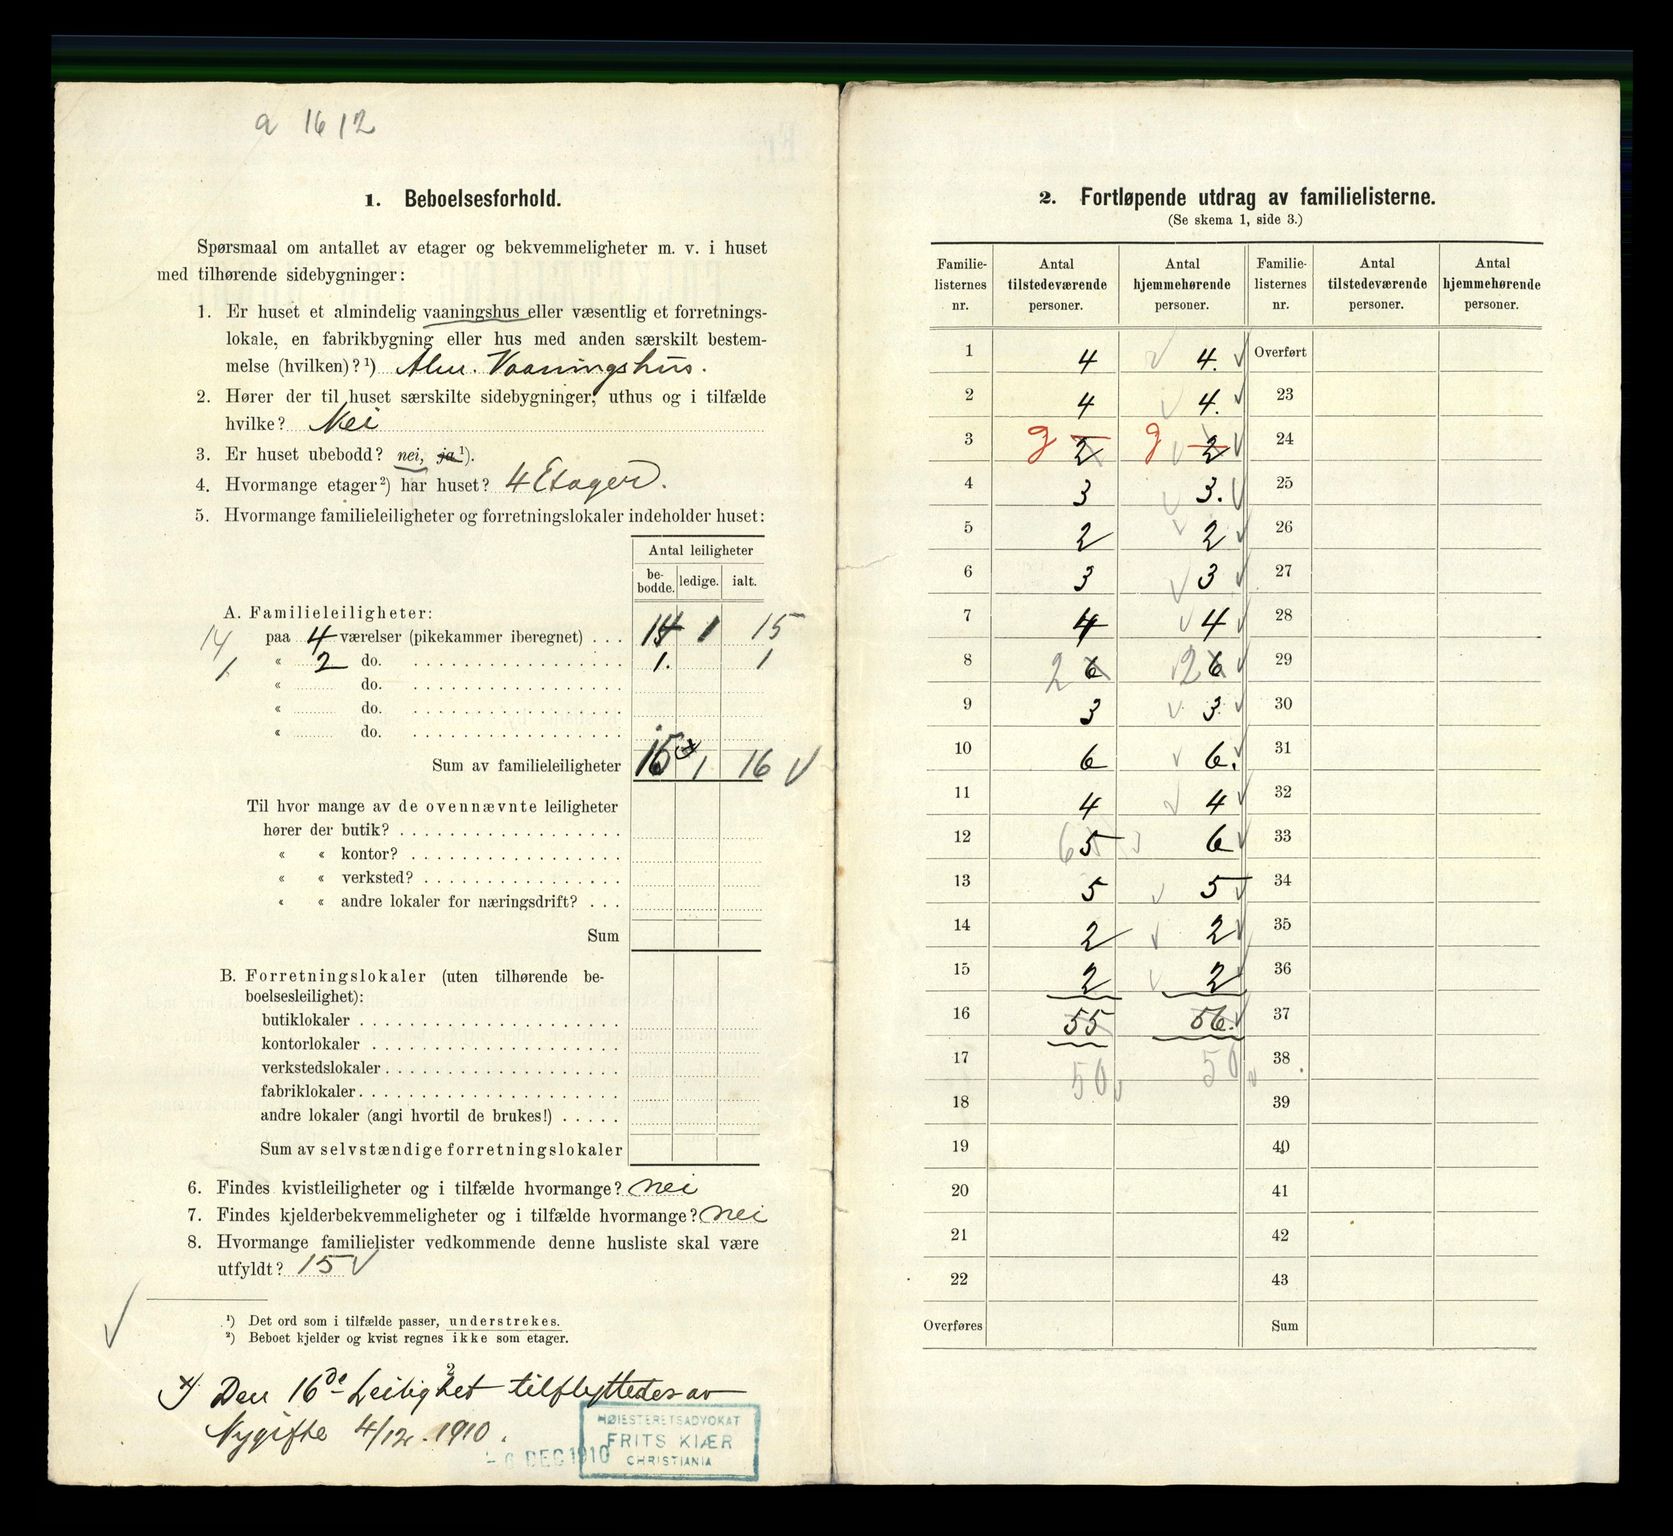 a 1612
1. Beboelsesforhold.
Spørsmaal om antallet av etager og bekvemmeligheter m. v. i huset
med tilhørende sidebygninger:
1. Er huset et almindelig vaaningshus eller væsentlig et forretnings-
lokale, en fabrikbygning eller hus med anden særskilt bestem-
melse (hvilken)? ¹) Alm. Vaaningshus.
2. Hører der til huset særskilte sidebygninger, uthus og i tilfælde
hvilke? Nei
3. Er huset ubebodd? nei, ja ¹).
4. Hvormange etager ²) har huset? 4 Etager.
5. Hvormange familieleiligheter og forretningslokaler indeholder huset:
Antal leiligheter
be-bodde. ledige. ialt.
A. Familieleiligheter:
14 paa 4 værelser (pikekammer iberegnet) . . . 14 1 15
1 « 2 do. 1. 1
« do.
« do.
« do.
Sum av familieleiligheter 15 x) 1 16 √
Til hvor mange av de ovennævnte leiligheter
hører der butik?
« « kontor?
« « verksted?
« « andre lokaler for næringsdrift?
Sum
B. Forretningslokaler (uten tilhørende be-
boelsesleilighet):
butiklokaler
kontorlokaler
verkstedslokaler
fabriklokaler
andre lokaler (angi hvortil de brukes!)
Sum av selvstændige forretningslokaler
6. Findes kvistleiligheter og i tilfælde hvormange? nei
7. Findes kjelderbekvemmeligheter og i tilfælde hvormange? nei
8. Hvormange familielister vedkommende denne husliste skal være
utfyldt? 15 √
¹) Det ord som i tilfælde passer, understrekes.
²) Beboet kjelder og kvist regnes ikke som etager.
2
x) Den 16de Leilighet tilflyttedes av
Nygifte 4/12. 1910.
- 6 DEC 1910
HØIESTERETSADVOKAT
FRITS KIÆR
CHRISTIANIA
2. Fortløpende utdrag av familielisterne.
(Se skema 1, side 3.)
Familie-listernes nr. Antal tilstedeværende personer. Antal hjemmehørende personer. Familie-listernes nr. Antal tilstedeværende personer. Antal hjemmehørende personer.
1 4 √ 4. √ Overført
2 4 √ 4. √ 23
3 g 2 g √ 2 √ 24
4 3 √ 3. √ 25
5 2 √ 2 √ 26
6 3 √ 3 √ 27
7 4 √ 4 √ 28
8 2 6 2 6 √ 29
9 3 √ 3 √ 30
10 6 √ 6. √ 31
11 4 √ 4 √ 32
12 6 5 6 √ 33
13 5 √ 5 √ 34
14 2 √ 2 √ 35
15 2 √ 2 36
16 55 56. √ 37
17 50 √ 50 √ 38
18 39
19 40
20 41
21 42
22 43
Overføres Sum